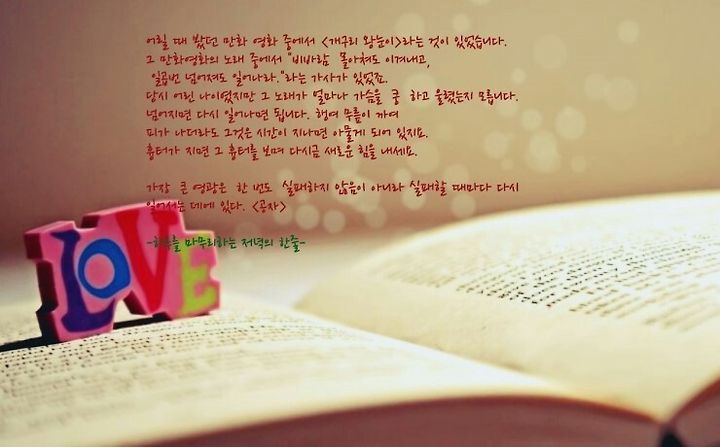 어릴 때 봤던 만화 영화 중에서 <개구리 왕눈이>라는 것이 있었습니다.
그 만화영화의 노래 중에서 "비바람 몰아쳐도 이겨내고,
일곱번 넘어져도 일어나라."라는 가사가 있었죠.
당시 어린 나이였지만 그 노래가 얼마나 가슴을 쿵 하고 울렸는지 모릅니다.
넘어지면 다시 일어나면 됩니다. 행여 무릎이 까여
피가 나더라도 그것은 시간이 지나면 아물게 되어 있지요.
흉터가 지면 그 흉터를 보며 다시금 새로운 힘을 내세요.
가장 큰 영광은 한 번도 실패하지 않음이 아니라 실패할 때마다 다시
일어서는 데에 있다. <공자>
-하루를 마무리하는 저녁의 한줄-
LOVE